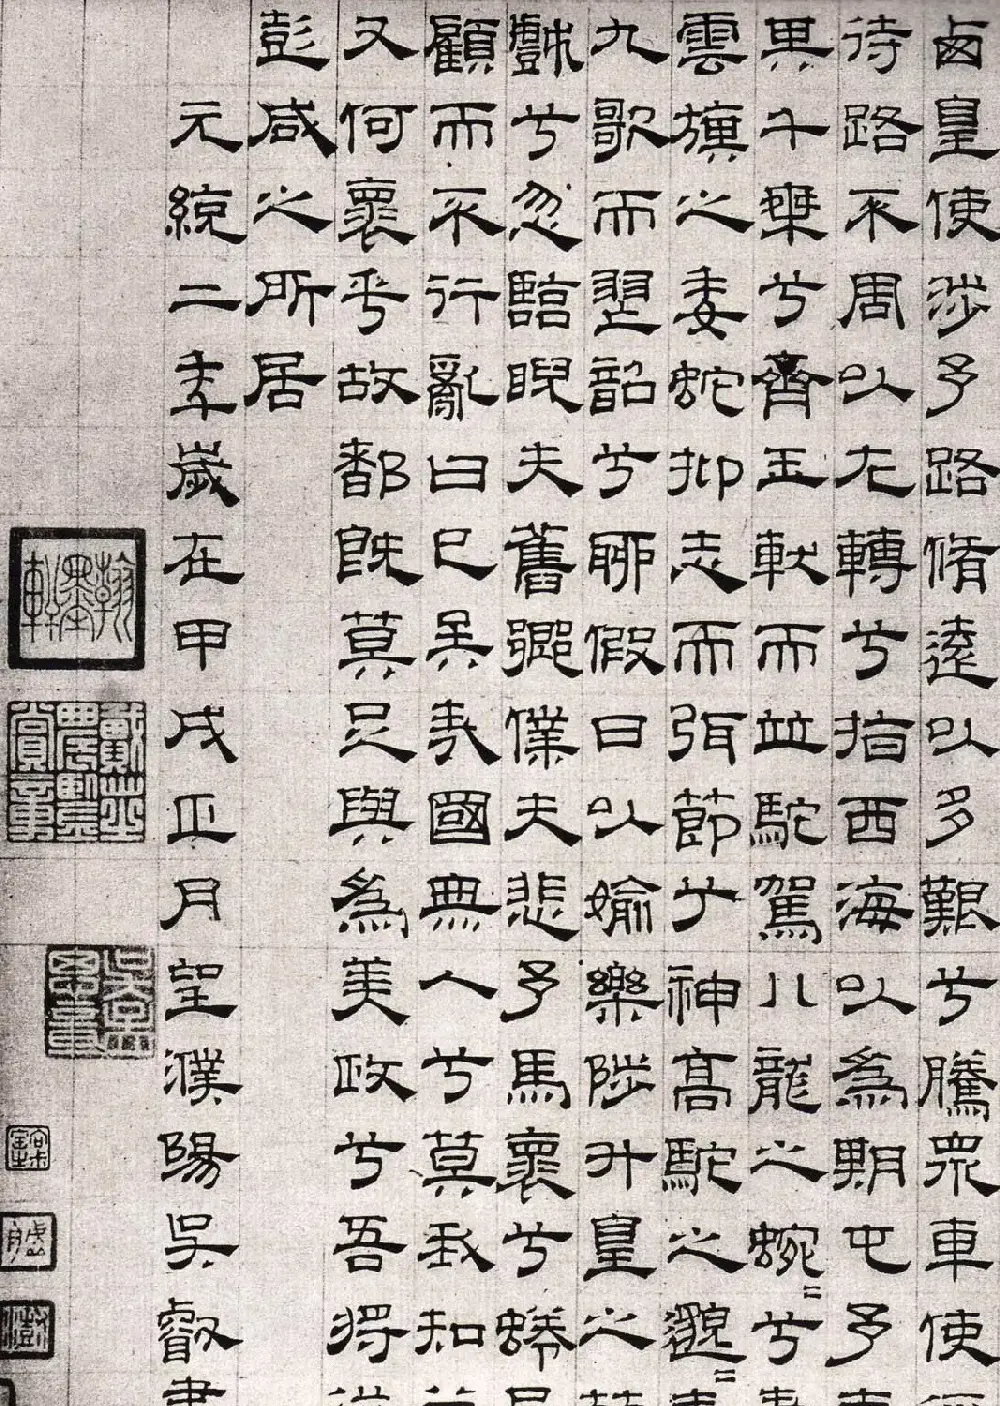 卥皇使涉予路脩遠以多艱兮騰眾車使
待路不周以左轉兮指西海以為期屯予車
其千乘兮齊玉軑而並馳駕八龍之蜿=兮
雲旗之委蛇抑志而弭節兮神高馳之邈=
九歌而翌韶兮聊假日以媮樂陟升皇之
戲兮忽臨睨夫舊鄉僕夫悲予馬懷兮蜷局
顧而不行亂曰已矣哉國無人兮莫我知兮
又何懷乎故都既莫足與為美政兮吾將從
彭咸之所居
元統二年歲在甲戌正月望濮陽吳叡書
翰墨軒